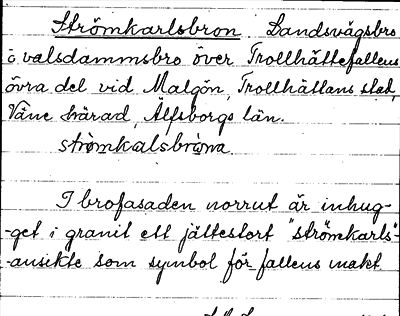 Strömkarlsbron. Landsvägsbro
o. valsdammsbro över Trollhättefallens
övra del vid Malgön, Trollhättans stad,
Väne härad, Älfsborgs län.
strömkalsbròna.
I brofasaden norrut är inhug-
-get i granit ett jättestort "strömkarls"-
-ansikte som symbol för fallens makt.